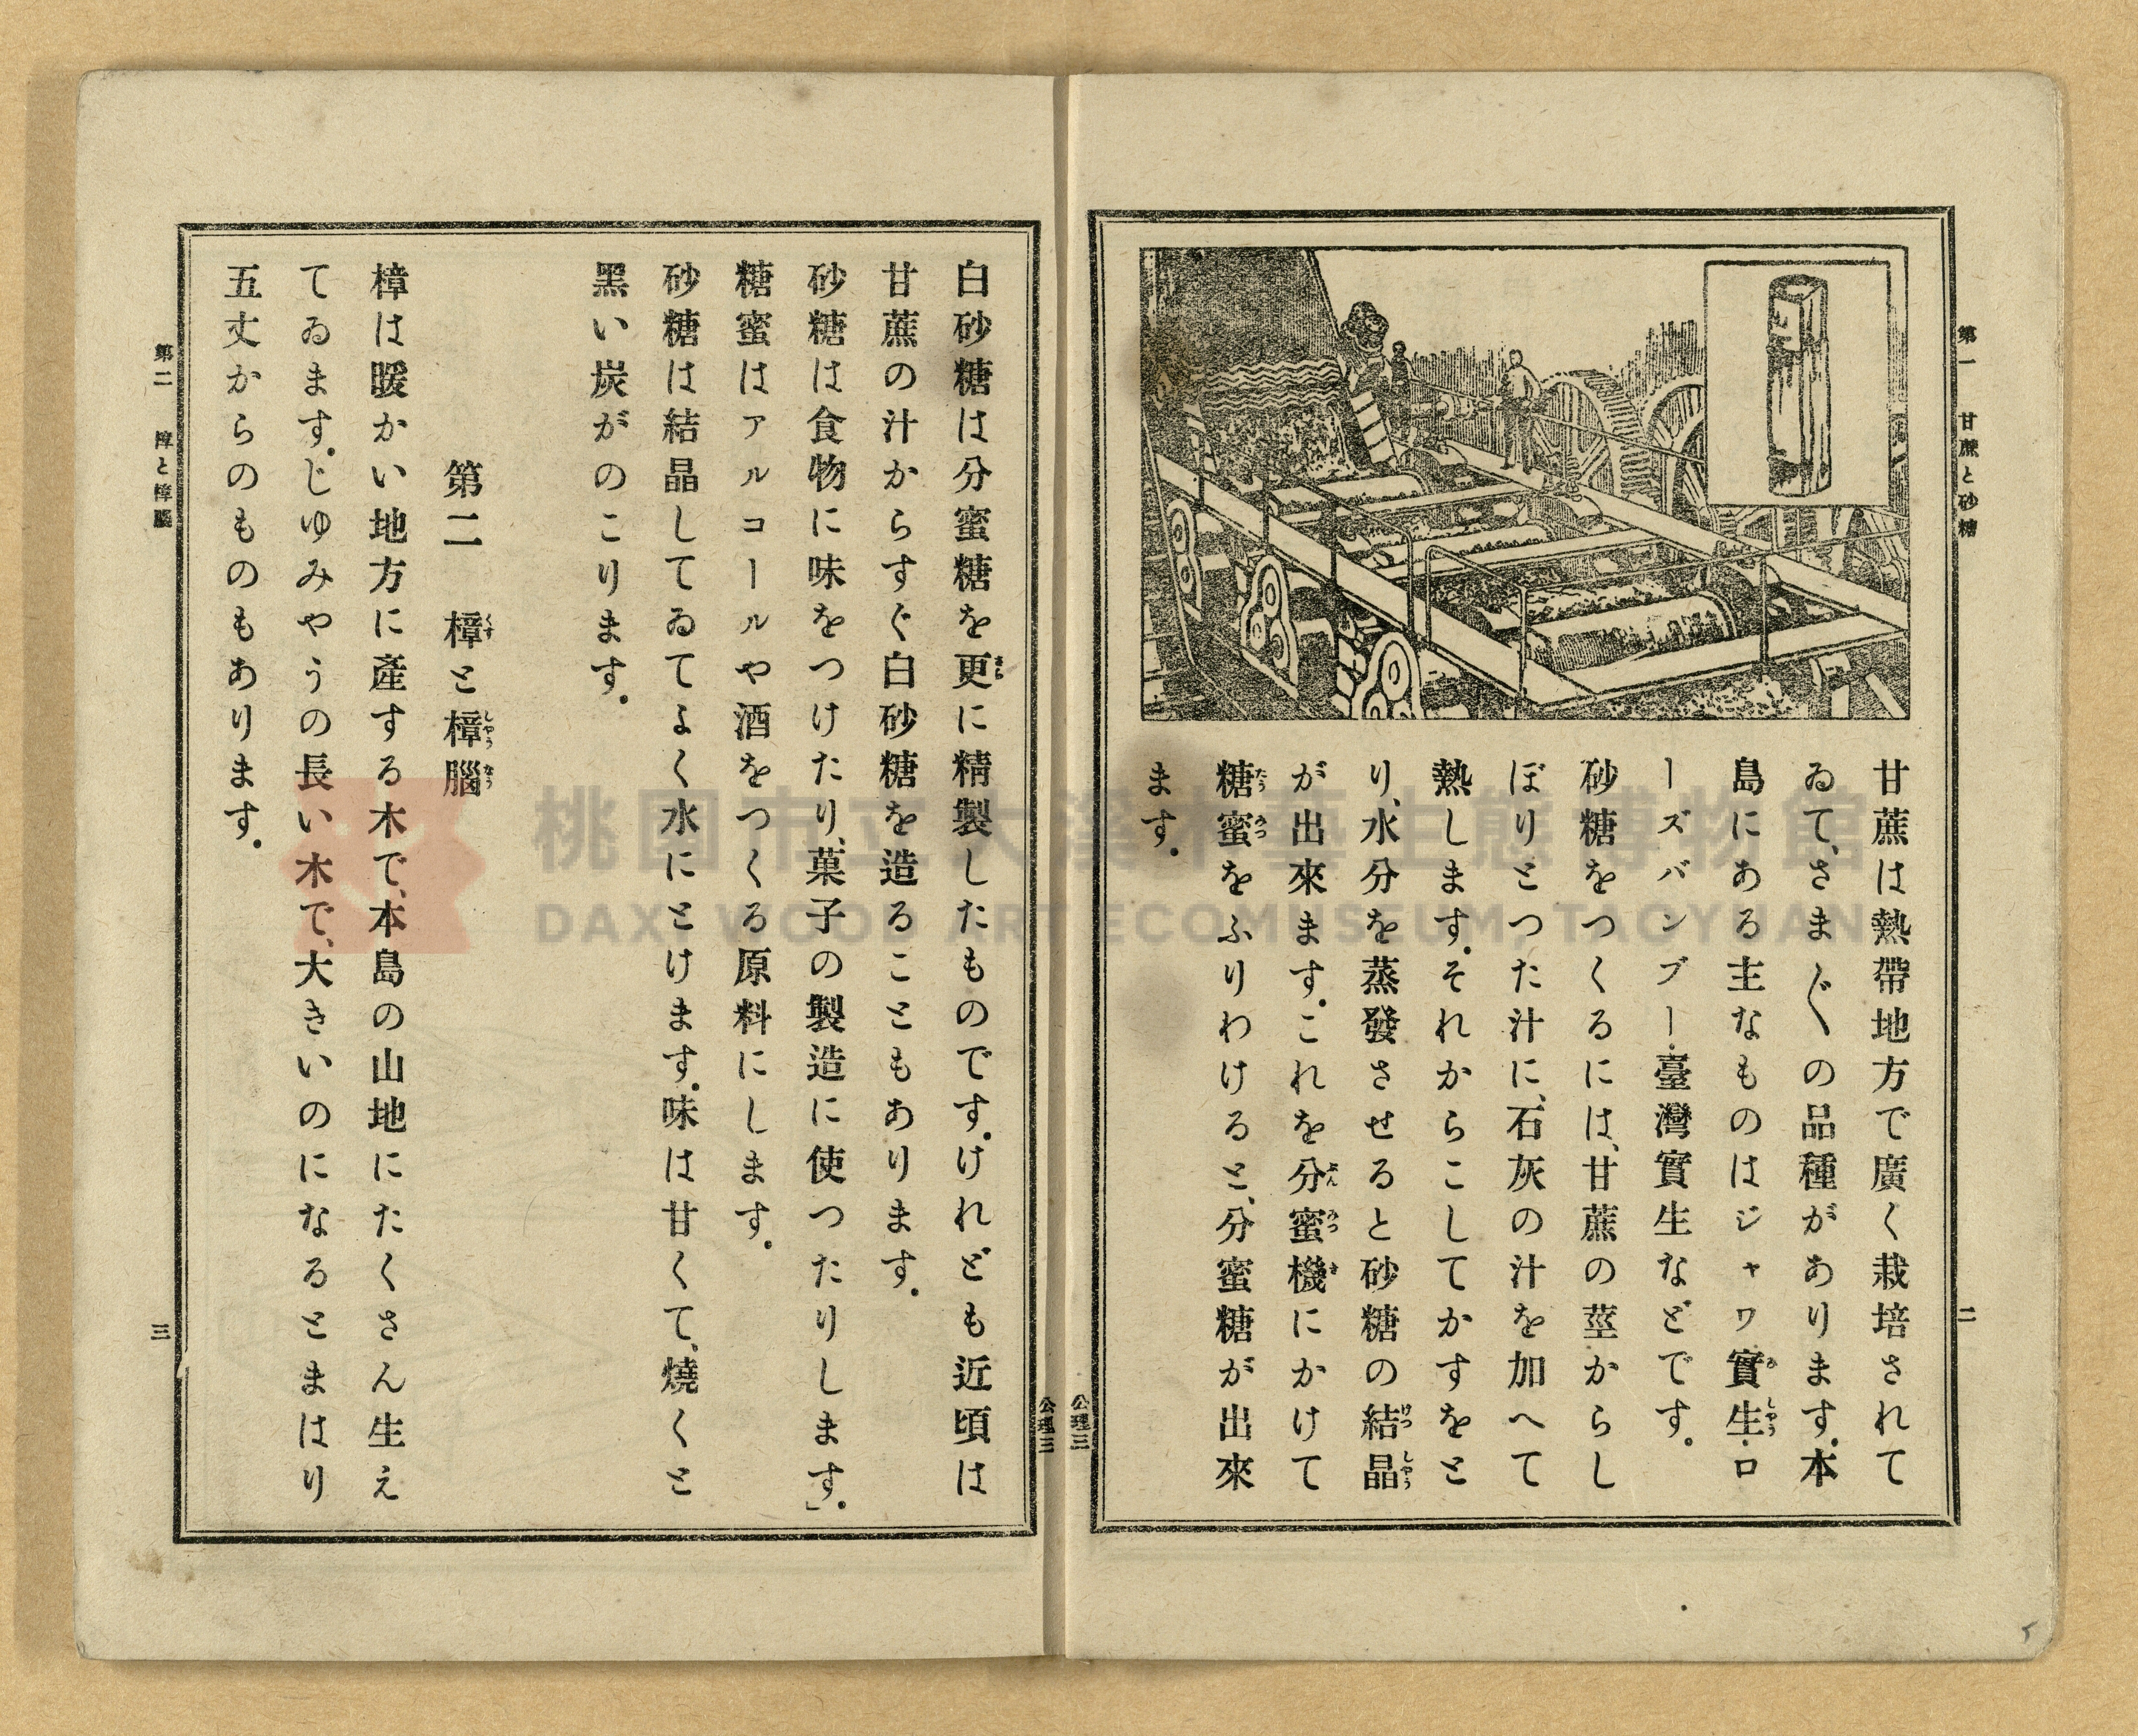 第一 甘蔗と砂糖
二
甘蔗は熱帶地方で廣く栽培されて
ゐて、さま〴〵の品種があります。本
島にある主なものはジャワ實生・ロ
ーズバンブー・臺灣實生などです。
砂糖をつくるには、甘蔗の莖からし
ぼりとつた汁に、石灰の汁を加へて
熱します。それからこしてかすをと
り、水分を蒸發させると砂糖の結晶
が出來ます。これを分蜜機にかけて
糖蜜をふりわけると、分蜜糖が出來
ます。
公理三
公理三
白砂糖は分蜜糖を更に精製したものです。けれども近頃は
甘蔗の汁からすぐ白砂糖を造ることもあります。
砂糖は食物に味をつけたり、菓子の製造に使つたりします」。
糖蜜はアルコールや酒をつくる原料にします。
砂糖は結晶してゐてよく水にとけます。味は甘くて、燒くと
黑い炭がのこります。
第二 樟と樟腦
樟は暖かい地方に產する木で、本島の山地にたくさん生え
てゐます。じゆみやうの長い木で、大きいのになるとまはり
五丈からのものもあります。
第二 樟と樟腦
三
桃園市立大溪木藝生態博物館
DAXI WOOD ART ECOMUSEUM, TAOYUAN